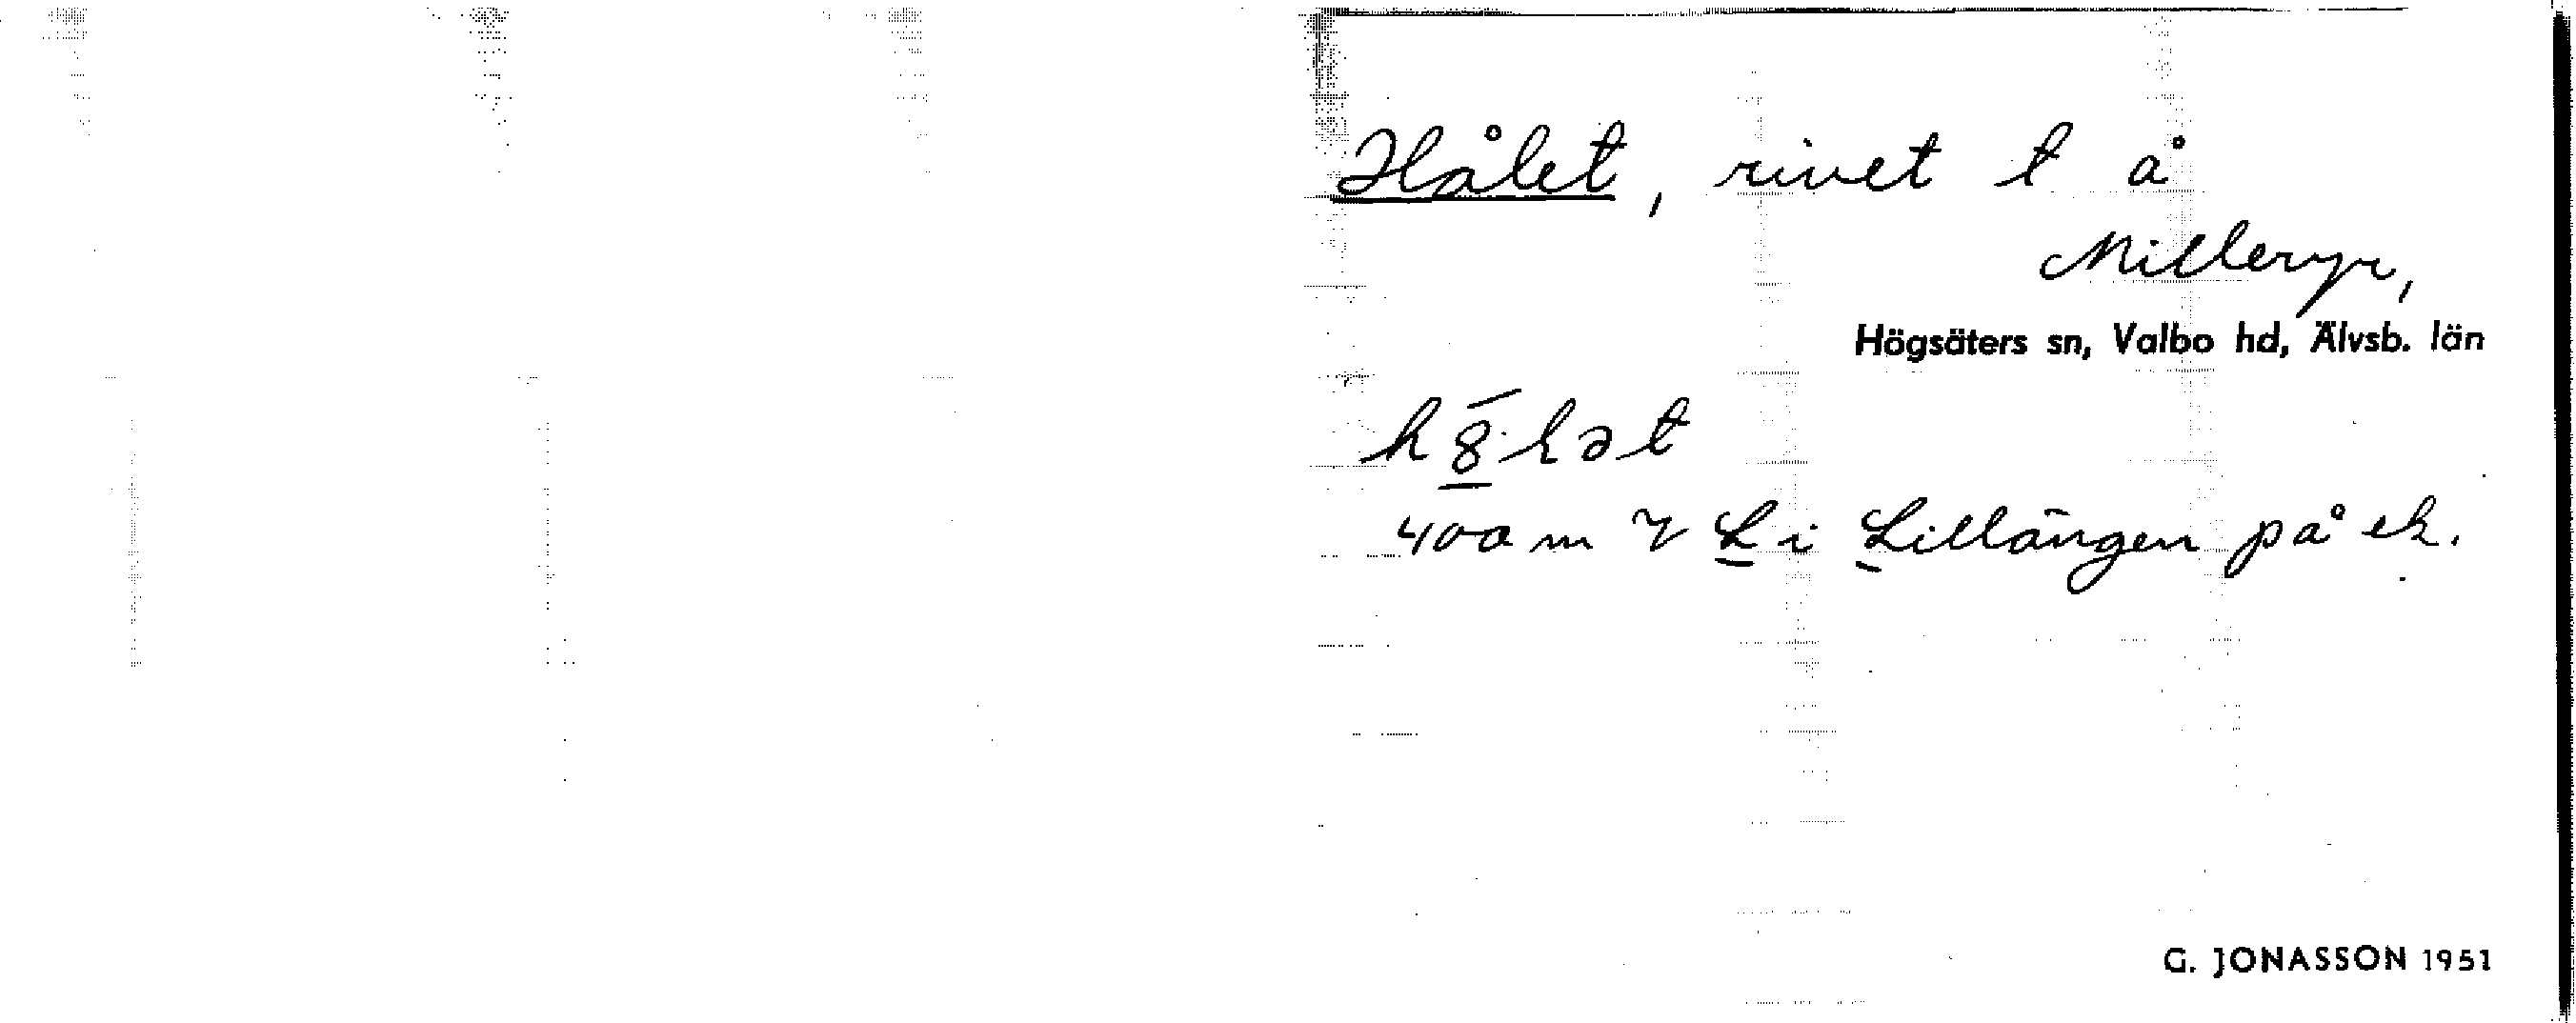 Hålet, rivet t å
Milleryr,
Högsäters sn, Valbo hd, Älvsb. län
400 m L i Lillängen på ek.
G. JONASSON 1951